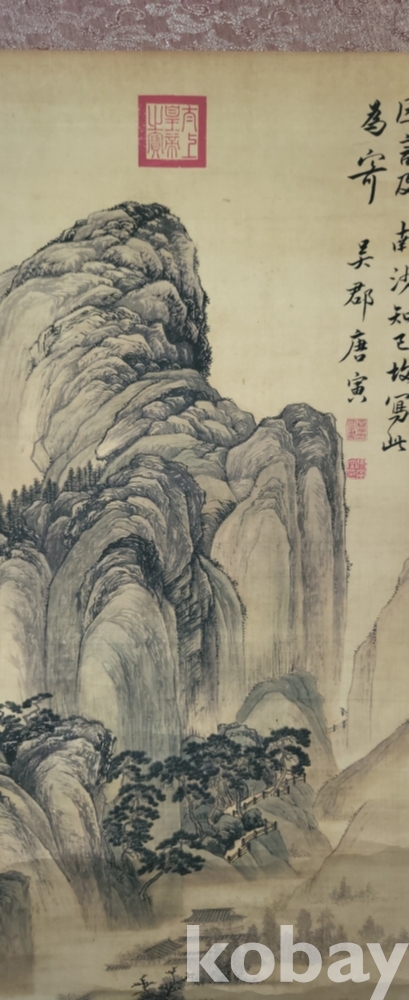 匡言及 南沙知己故寫此
為寄 吳郡唐寅
太上
皇帝
之寳
kobay